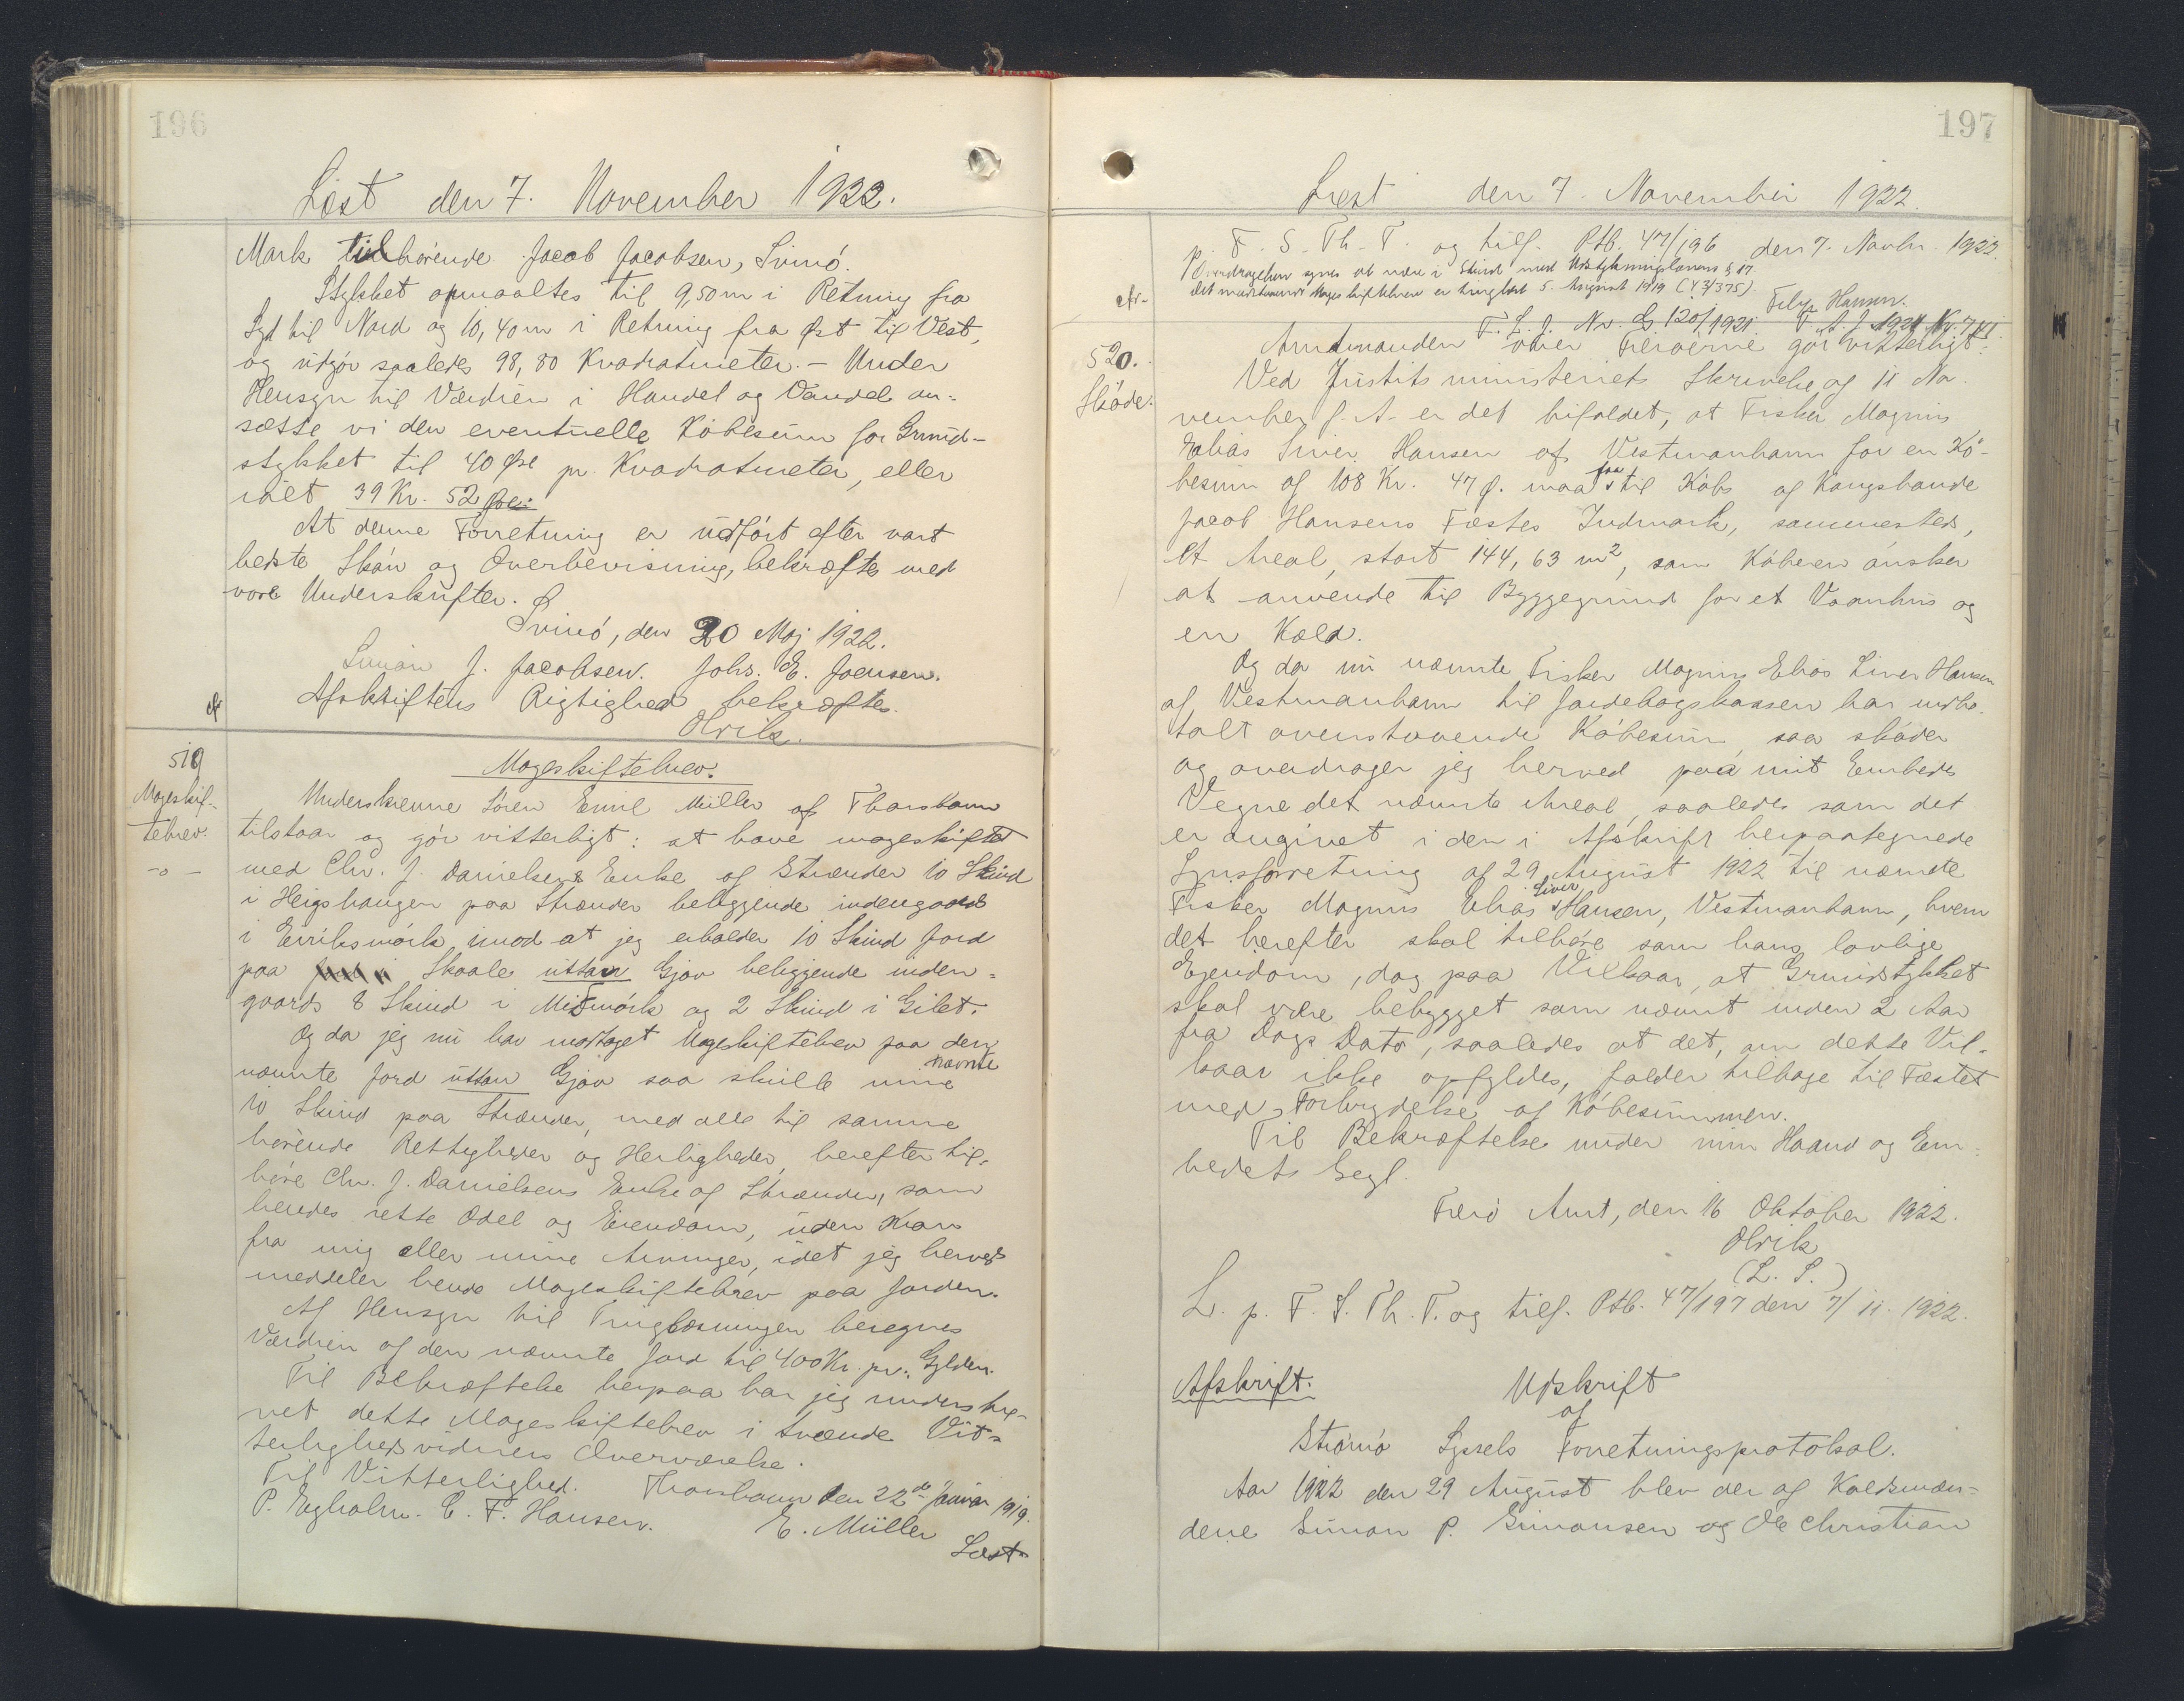 196
Læst den 7. November 1922.
Mark tilhørende Jacob Jacobsen, Svinó.
Stykket opmaaltes til 9,50 m i Retning fra
Syd til Nord og 10,40 m i Retning fra Øst til Vest,
og udgør saaledes 98,80 Kvadratmeter. - Under
Hensyn til Værdien i Handel og Vandel an-
sætte vi den eventuelle Köbesum for Grund-
stykket til 40 Øre pr. Kvadratmeter, eller
ialt 39 Kr. 52 Øre.
At denne Forretning er udfört efter vort
bedste Skön og Overbevisning, bekræftes med
vore Underskrifter.
Svinó, den 20 Maj 1922.
Simon J. Jacobsen. Johs. E. Joensen.
Afskriftens Rigtighed bekræftes.
Olrik.
519
Mageskif-
tebrev.
-o-
Mageskiftebrev.
Underskrevne Sören Emil Müller af Thorshavn
tilstaar og gör vitterligt: at have mageskiftet
med Chr. J. Danielsens Enke af Strænder 10 Skind
i Heigshaugen paa Strænder beliggende indengaards
i Eiriksmörk imod at jeg erholder 10 Skind Jord
paa Skaale uttan Gjov beliggende inden-
gaards 8 Skind i Midtmörk og 2 Skind i Gilet.
Og da jeg nu har modtaget Mageskiftebrev paa den
nævnte Jord uttan Gjov saa skulle mine nævnte
10 Skind paa Strænder, med alle til samme
hörende Rettigheder og Herligheder, herefter til-
höre Chr. J. Danielsens Enke af Strænder, som
hendes rette Odel og Eiendom, uden Krav
fra mig eller mine Arvinger, idet jeg herved
meddeler hende Mageskiftebrev paa Jorden.
Af Hensyn til Tinglæsningen beregnes
Værdien af den nævnte Jord til 400 Kr. pr. Gylden.
Til Bekræftelse herpaa har jeg underskre-
vet dette Mageskiftebrev i tvende Vit-
terlighedsvidners Overværelse.
Thorshavn den 22de Januar 1919.
Til Vitterlighed.
P. Egholm. C. F. Hansen. E. Müller
Læst
197
Læst den 7. November 1922.
p. F. S. Th. T. og tilf. Ptb. 47/196 den 7. Novbr. 1922.
Overdragelsen synes at være i Strid med Udstykningslovens § 17.
Det modstaaende Mageskiftebrev er tinglæst 5. August 1919 (43/375).
F. L. J. Nr. G. 120/1921. F. A. J. 1921 Nr. 741
520.
Skøde.
Amtmanden over Færöerne gör vitterligt:
Ved Justitsministeriets Skrivelse af 11 No-
vember f. A. er det bifaldet, at Fisker Magnus
Elias Siver Hansen af Vestmanhavn for en Kö-
besum af 108 Kr. 47 Ø. maa faa til Köbs af Kongsbonde
Jacob Hansens Fæstes Indmark, sammesteds,
et Areal, stort 144,63 m², som Köberen önsker
at anvende til Byggegrund for et Vaanhus og
en Kæld.
Og da nu nævnte Fisker Magnus Elias Siver Hansen
af Vestmanhavn til Jordebogskassen har indbe-
talt ovenstaaende Köbesum, saa sköder
og overdrager jeg herved paa mit Embeds
Vegne det nævnte Areal, saaledes som det
er angivet i den i Afskrift herpaategnede
Synsforretning af 29 August 1922 til nævnte
Fisker Magnus Elias Siver Hansen, Vestmanhavn, hvem
det herefter skal tilhöre som hans lovlige
Ejendom, dog paa Vilkaar, at Grundstykket
skal være bebygget som nævnt inden 2 Aar
fra Dags Dato, saaledes at det, om dette Vil-
kaar ikke opfyldes, falder tilbage til Fæstet
med Forbrydelse af Köbesummen.
Til Bekræftelse under min Haand og Em-
bedets Segl.
Færö Amt, den 16 Oktober 1922.
Olrik
(L. S.)
L. p. F. S. Th. T. og tilf. Ptb. 47/197 den 7/11. 1922.
Afskrift. Udskrift
af
Strömö Syssels Forretningsprotokol.
Aar 1922 den 29 August blev der af
dene Simon P. Simonsen og Ole Christian